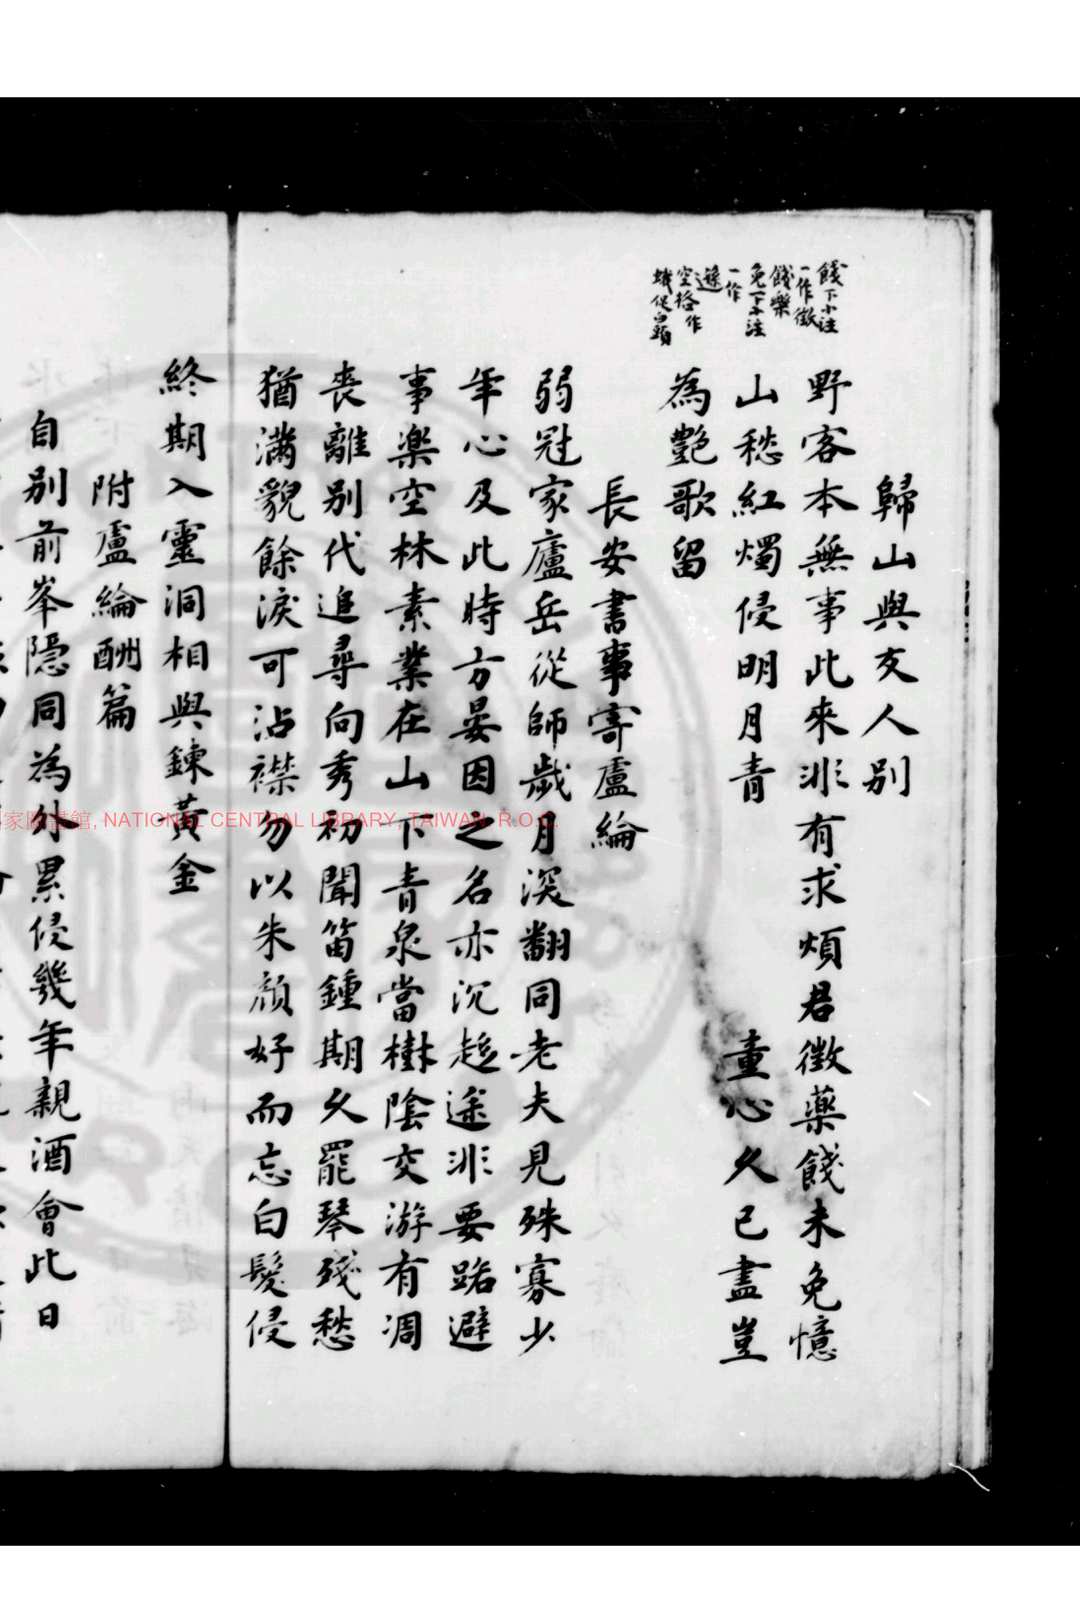 餞下小注
一作徵
餞藥
免下小注
一作
遊
空格作
蛾促白頭
歸山與友人别
野客本無事此來非有求煩君徵藥餞未免憶
山愁紅燭侵明月青　　　童心久已盡豈
為艷歌留
長安書事寄盧綸
弱冠家廬岳從師歲月深翻同老夫見殊寡少
年心及此時方晏因之名亦沉趍途非要路避
事樂空林素業在山下青泉當樹陰交游有凋
喪離别代追尋向秀初聞笛鍾期久罷琴殘愁
猶滿貌餘淚可沾襟勿以朱顔好而忘白髮侵
終期入靈洞相與鍊黃金
附盧綸酬篇
自别前峯隱同為外累侵幾年親酒會此日
家圖書館, NATIONAL CENTRAL LIBRARY, TAIWAN, R.O.C.